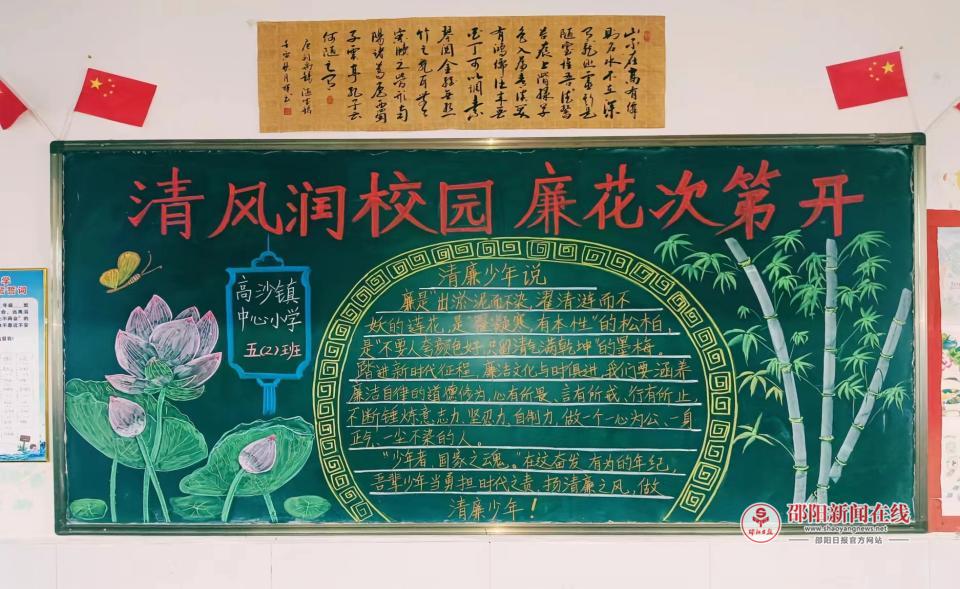 山不在高有僊
則名水不在深
有龍則靈斯是
陋室惟吾德馨
苔痕上階綠草
色入簾青談笑
有鴻儒往來無
白丁可以調素
琴閱金經無絲
竹之亂耳無
案牘之勞形南
陽諸葛廬西蜀
子雲亭孔子云
何陋之有
清风润校园 廉花次第开
高沙镇
中心小学
五(2)班
清廉少年说
廉是"出淤泥而不染,濯清涟而不
妖的莲花,是"罹凝寒,有本性"的松柏,
是"不要人夸颜色好,只留清气满乾坤"的墨梅。
踏进新时代征程,廉洁文化与时俱进,我们要涵养
廉洁自律的道德修为,心有所畏、言有所戒、行有所止,
不断锤炼意志力、坚忍力、自制力,做一个一心为公、一身
正气、一尘不染的人。
"少年者,国家之魂。"在这奋发有为的年纪,
吾辈少年当勇担时代之责,扬清廉之风,做
清廉少年!
邵阳日报
邵阳新闻在线
www.shaoyangnews.net
邵阳日报官方网站